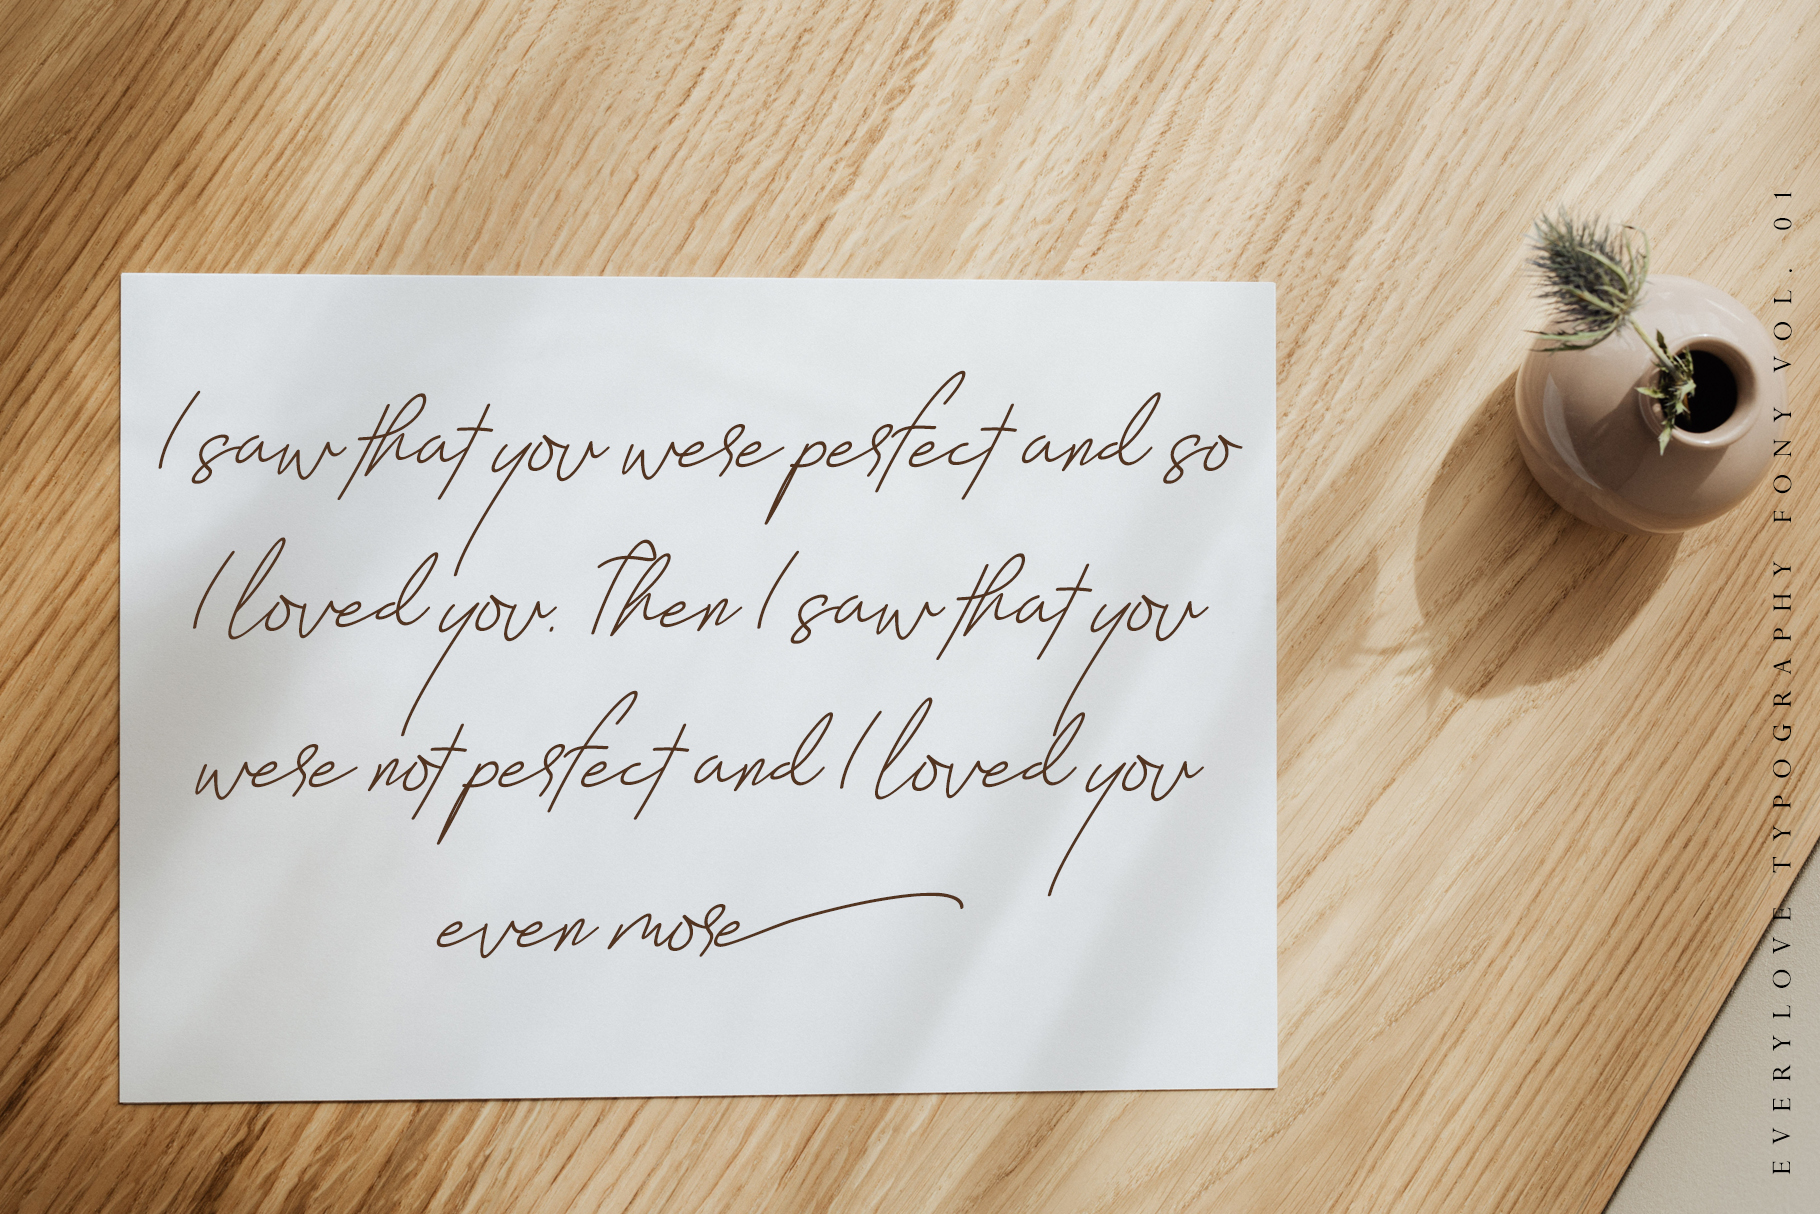 I saw that you were perfect and so
I loved you. Then I saw that you
were not perfect and I loved you
even more
EVERYLOVE TYPOGRAPHY FONY VOL. 01